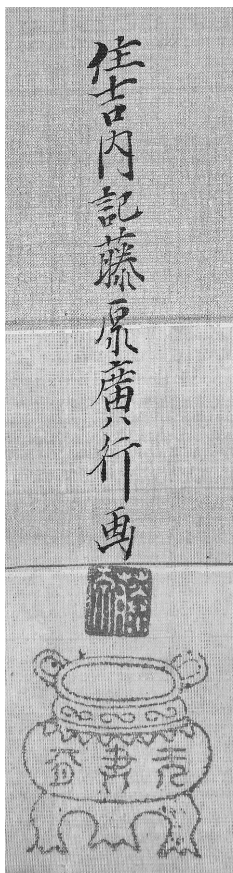 住吉内記藤原廣行画